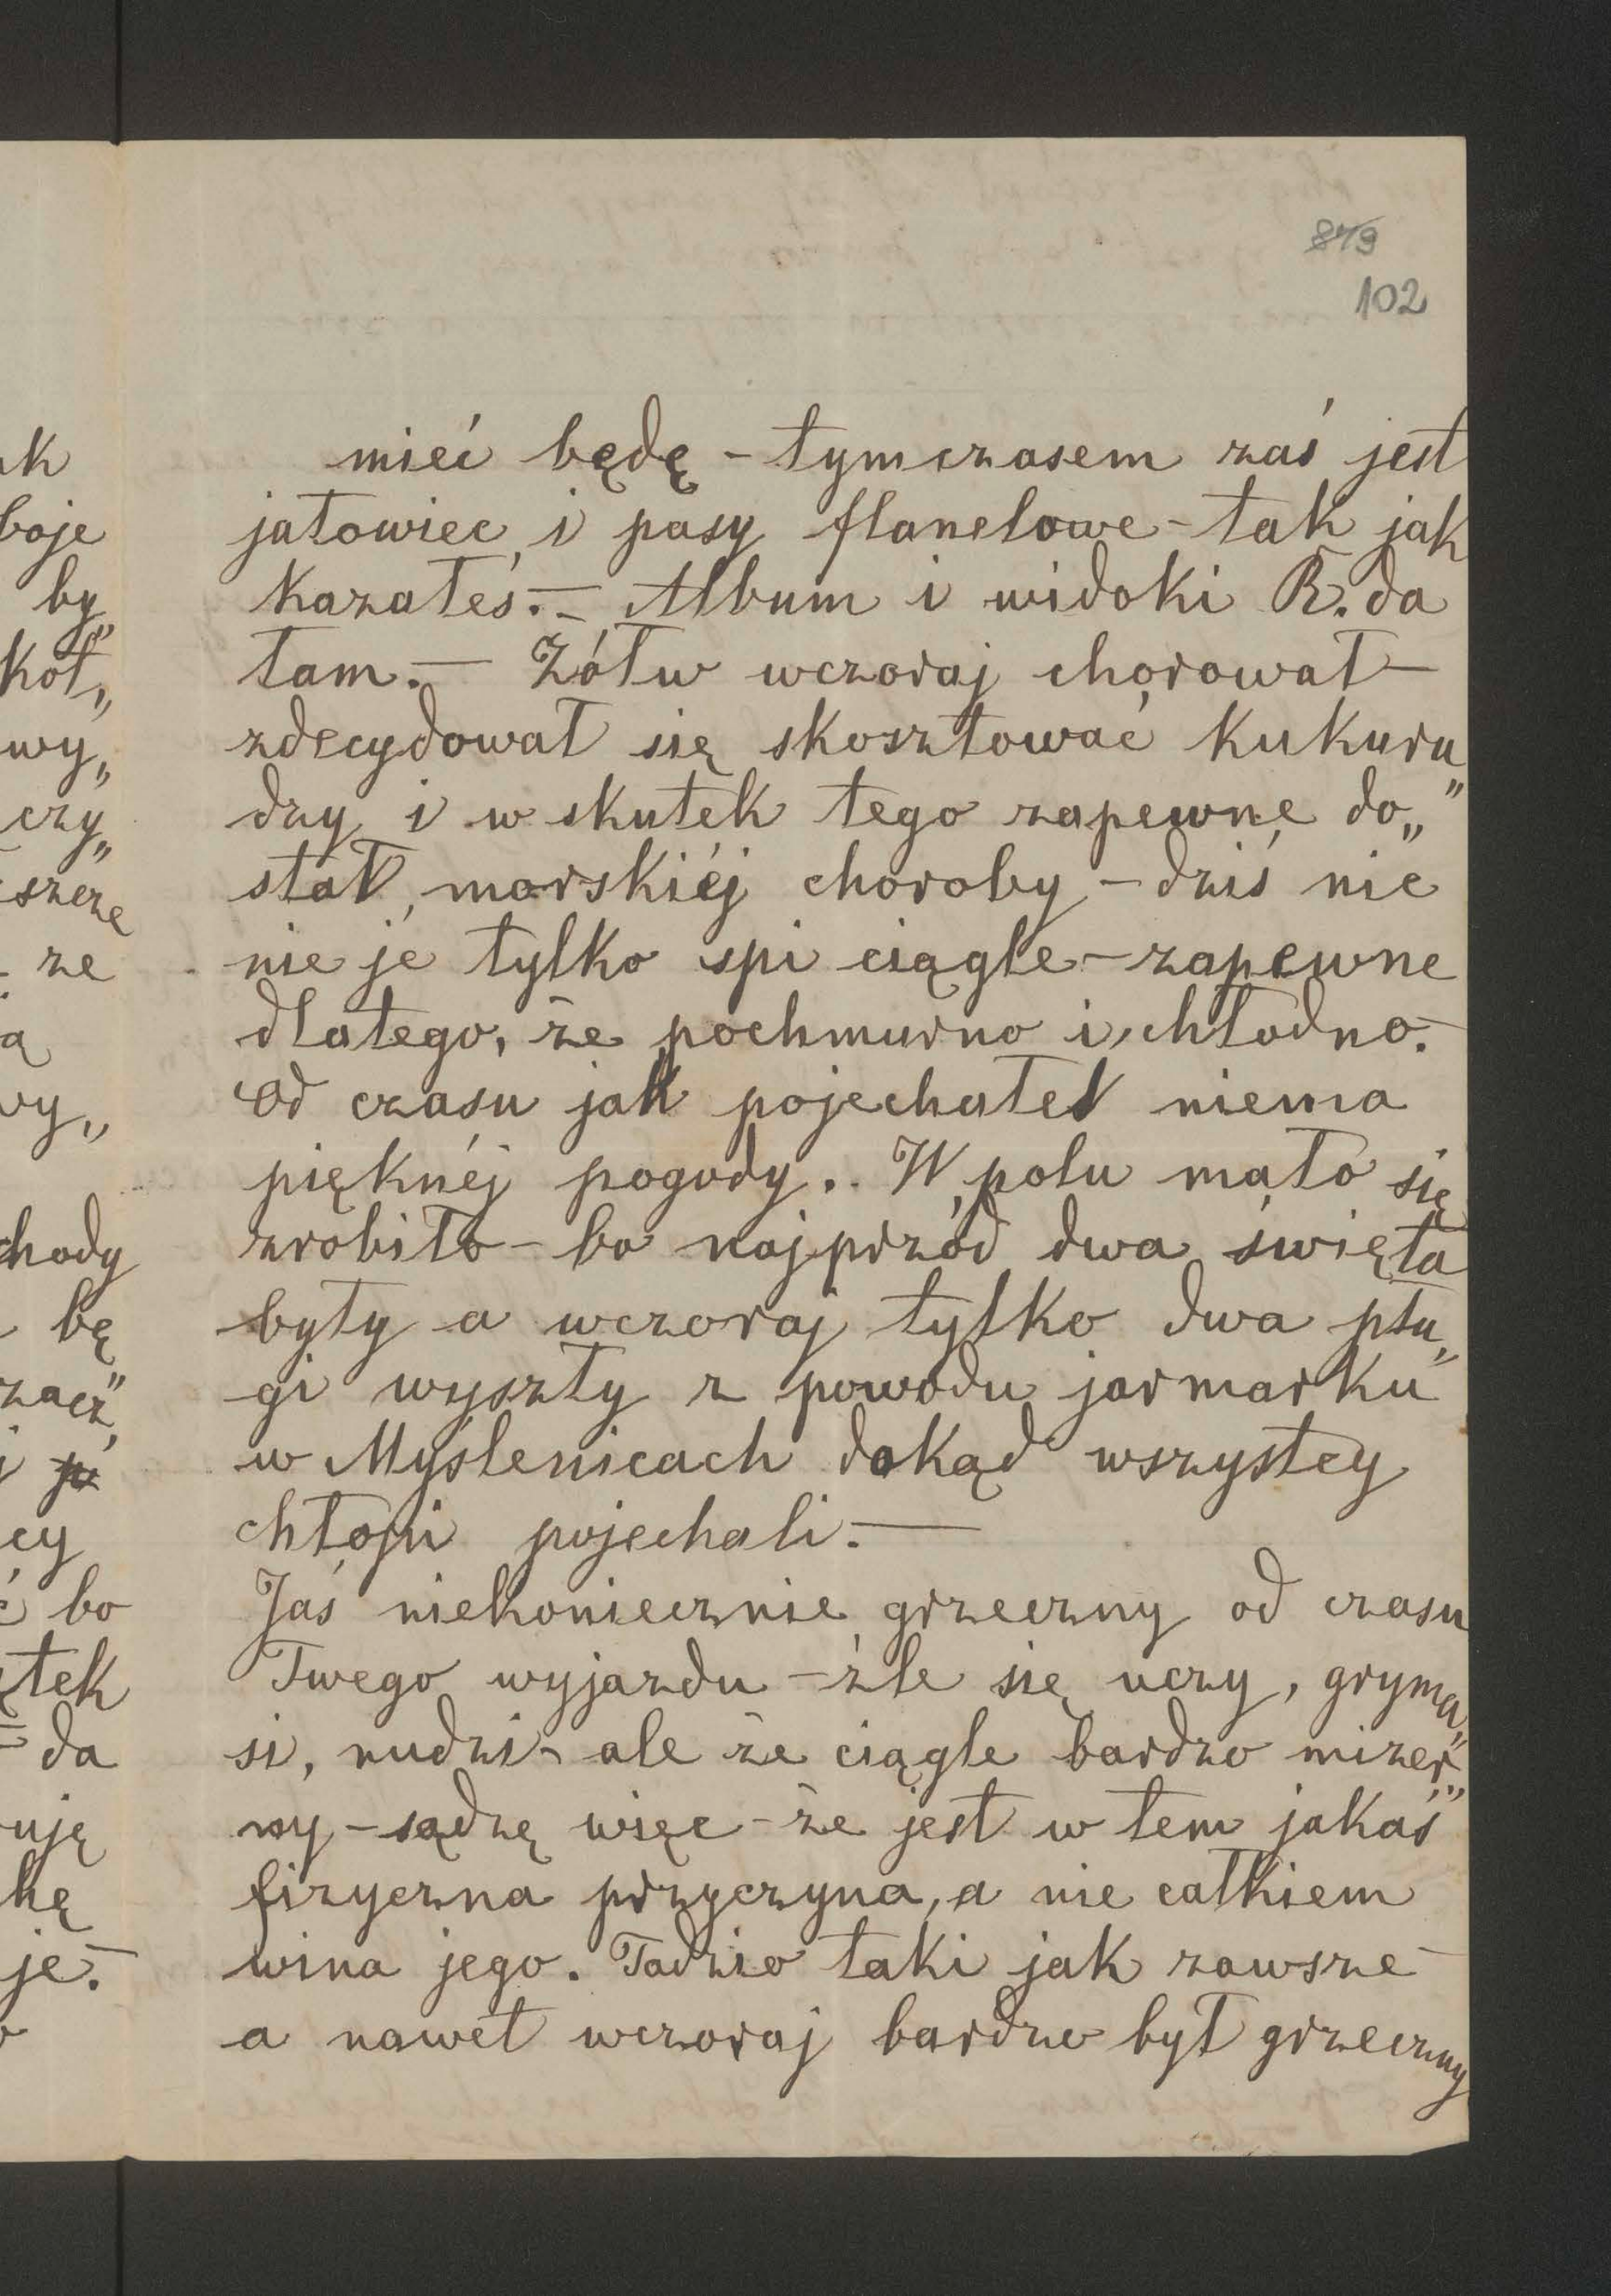 879
102
mieć będę - tymczasem zaś jest
jałowiec i pasy flanelowe - tak jak
kazałeś. — Album i widoki R. da
tam. — Żółw wczoraj chorował —
zdecydował się skosztować kukuru„
dzy i w skutek tego zapewne do„
stał morskiéj choroby - dziś nic
nie je tylko spi ciągle - zapewne
dlatego, że pochmurno i chłodno. —
Od czasu jak pojechałeś niema
pięknéj pogody. . W polu mało się
zrobiło - bo najprzód dwa święta
były a wczoraj tylko dwa płu„
gi wyszły z powodu jarmarku
w Myślenicach dokąd wszystcy
chłopi pojechali. —
Jaś niekoniecznie grzeczny od czasu
Twego wyjazdu - źle się uczy, gryma„
si, nudzi - ale że ciągle bardzo mizer„
ny - sądzę więc - że jest w tem jakaś
fizyczna przyczyna, a nie całkiem
wina jego. Tadzio taki jak zawsze -
a nawet wczoraj bardzo był grzeczny